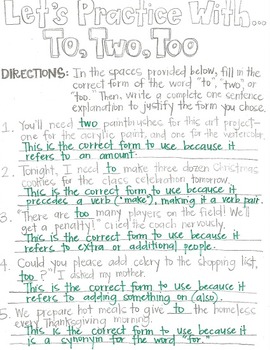 Let's Practice With...
To, Two, Too
DIRECTIONS: In the spaces provided below, fill in the
correct form of the word "to", "two," or
"too." Then, write a complete one sentence
explanation to justify the form you chose.
1. You'll need two paintbrushes for this art project-
one for the acrylic paint, and one for the watercolor.
This is the correct form to use because it
refers to an amount.
2. Tonight, I need to make three dozen Christmas
cookies for the class celebration, tomorrow.
This is the correct form to use because it
precedes a verb ("make"), making it a verb pair.
3. "There are too many players on the field! We'll
get a penalty!" cried the coach nervously.
This is the correct form to use because it
refers to extra or additional people.
4. Could you please add celery to the shopping list,
too?" I asked my mother.
This is the correct form to use because it
refers to adding something on (also).
5. We prepare hot meals to give to the homeless
every Thanksgiving morning.
This is the correct form to use because it
is a synonym for the word "for."